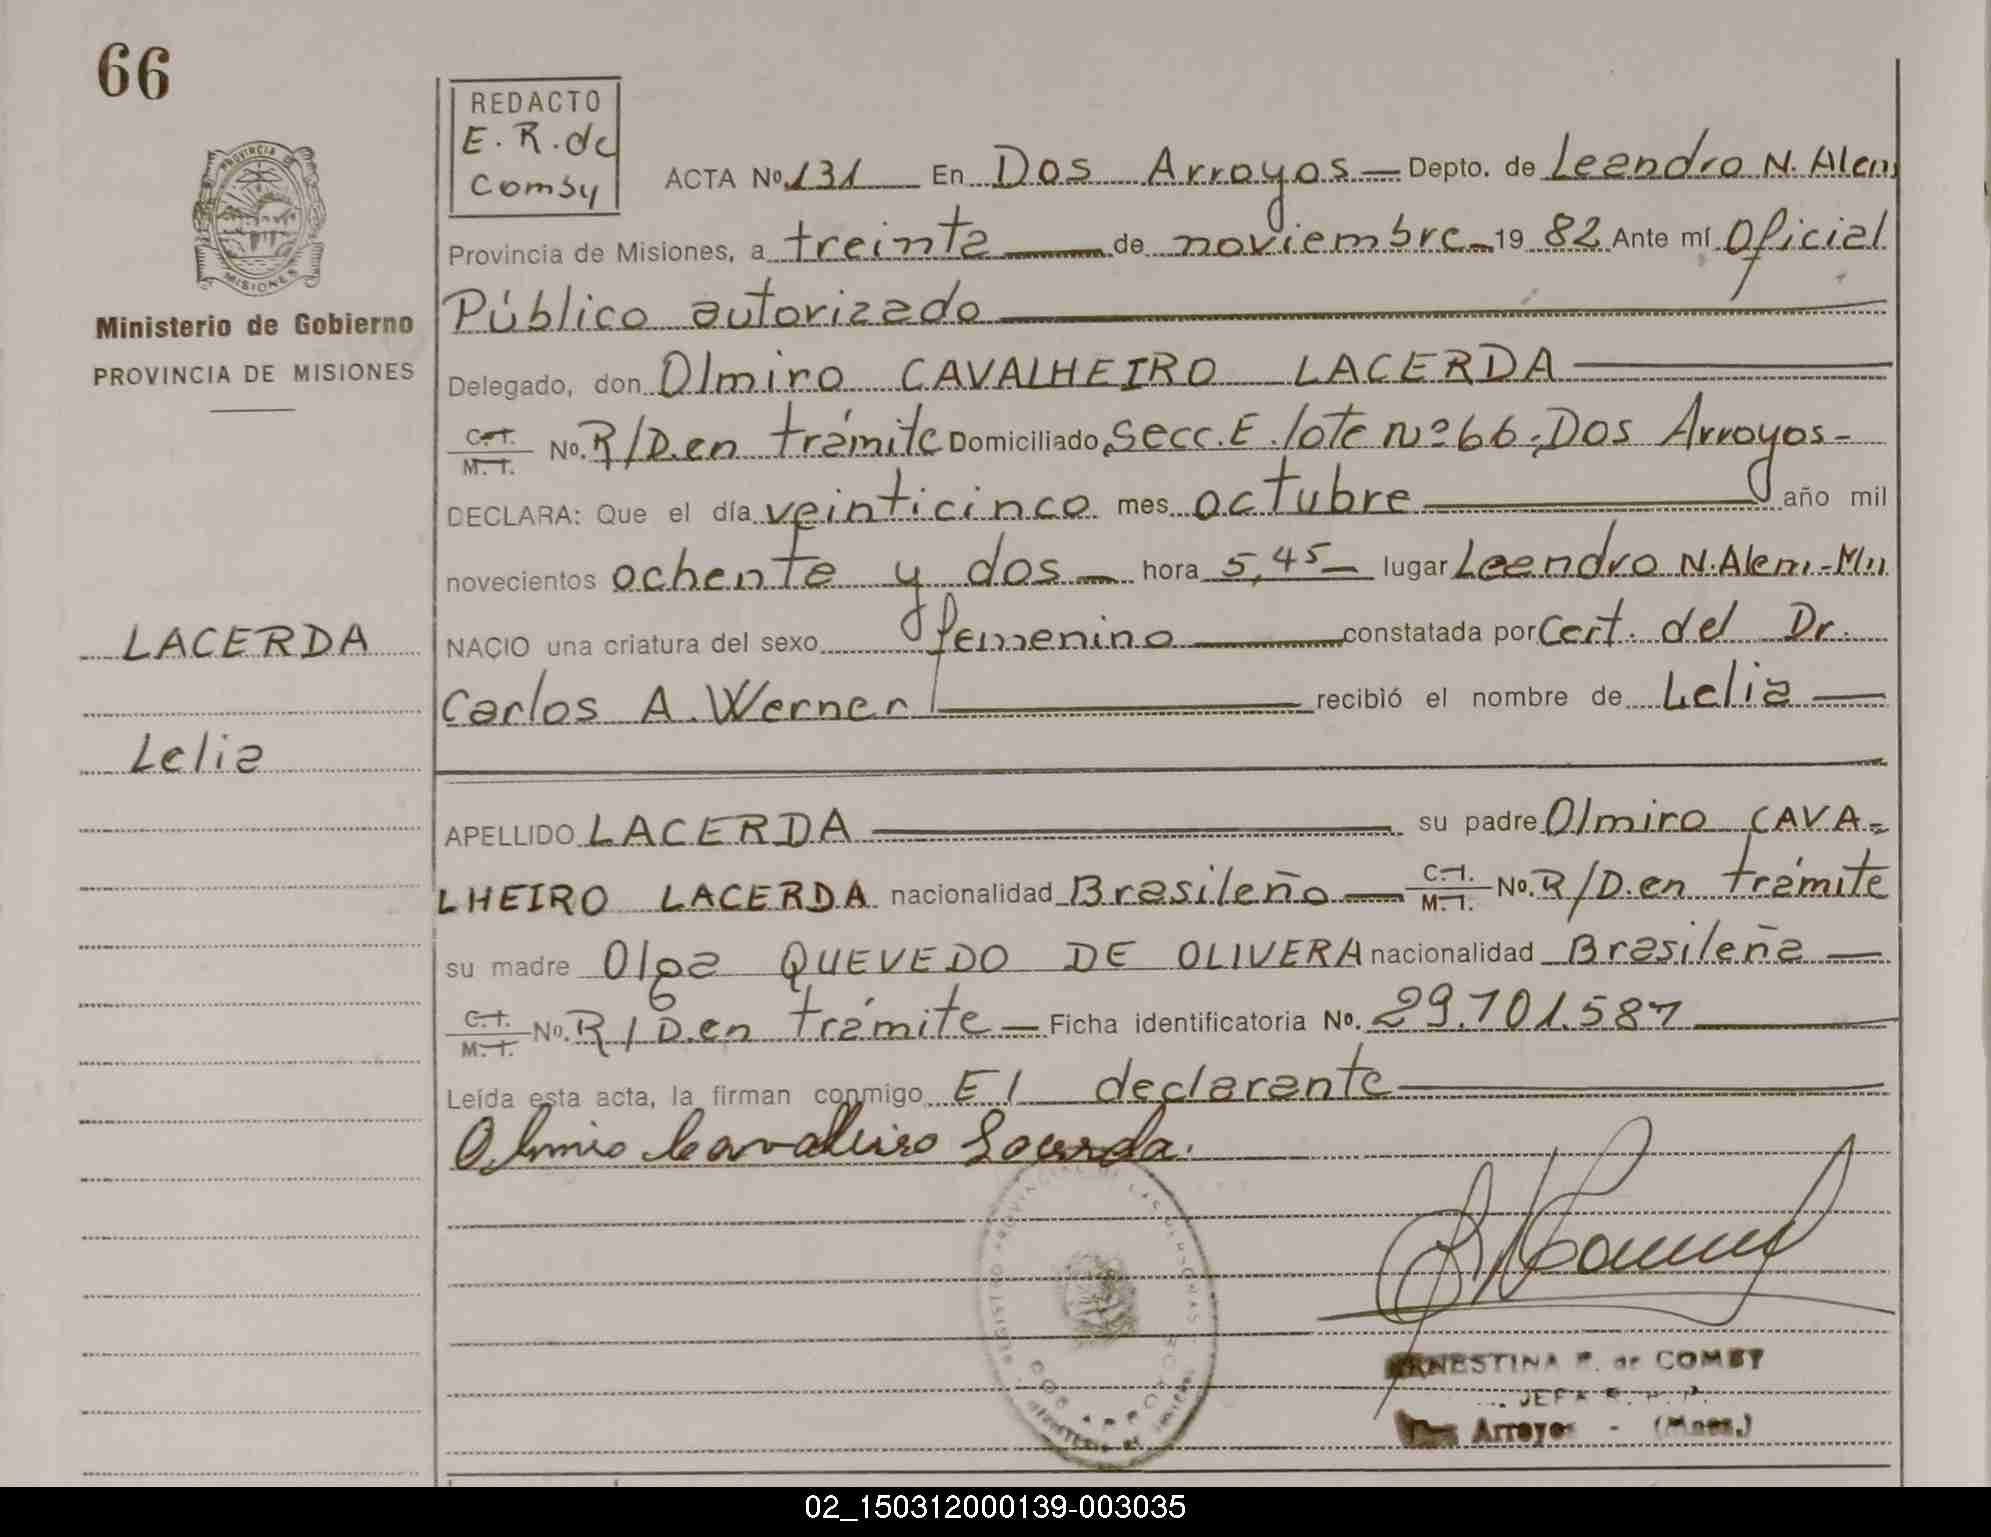 66
REDACTO
E. R. de
Comby
ACTA No. 131 En Dos Arroyos — Depto. de Leandro N. Alem
Provincia de Misiones, a treinta — de noviembre — 19 82 Ante mí Oficial
Público autorizado
Ministerio de Gobierno
PROVINCIA DE MISIONES
Delegado, don Olmiro CAVALHEIRO LACERDA
C. I. M. I. No. R/D. en trámite Domiciliado Secc. E. lote nº 66. Dos Arroyos -
DECLARA: Que el día veinticinco mes octubre año mil
novecientos ochenta y dos — hora 5,45 — lugar Leandro N. Alem -
LACERDA
NACIO una criatura del sexo femenino constatada por Cert. del Dr.
Carlos A. Werner recibió el nombre de Lelia
Lelia
APELLIDO LACERDA su padre Olmiro CAVA-
LHEIRO LACERDA nacionalidad Brasileño — C. I. M. I. No. R/D. en trámite
su madre Olga QUEVEDO DE OLIVERA nacionalidad Brasileña —
C. I. M. I. No. R/D. en trámite — Ficha identificatoria No. 29.701.587
Leída esta acta, la firman conmigo El declarante
Olmiro Cavalheiro Lacerda.
PROVINCIA DE MISIONES
REGISTRO PROVINCIAL DE LAS PERSONAS
DOS ARROYOS
ERNESTINA R. de COMBY
JEFA R. P. P.
Dos Arroyos - (Mnes.)
02_150312000139-003035